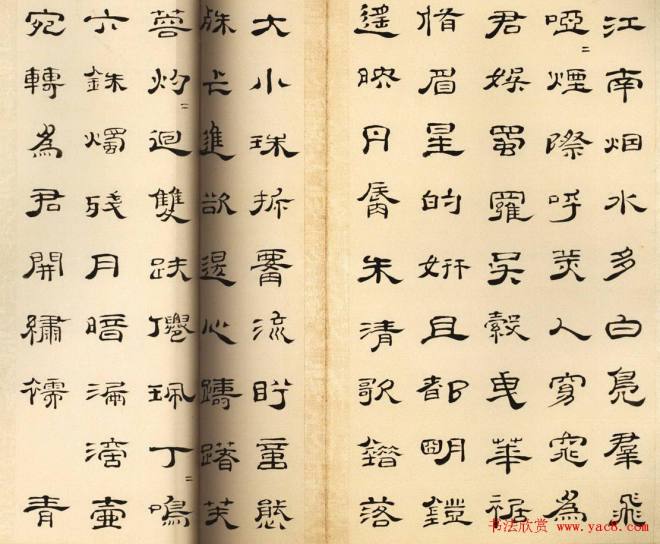 江南烟水多白鳧羣飛
啞〻煙際呼美人窈窕為
君娛蜀羅吳縠曳華裾
脩眉星的妍且都明鐙
遥映丹脣朱清歌錯落
大小珠流眄態
殊進欲還心躊躇芙
蓉灼〻迴雙趺珮丁〻鳴
六銖燭殘月暗漏滴壺
宛轉為君開繡襦 青
书法欣赏 www.yac8.com